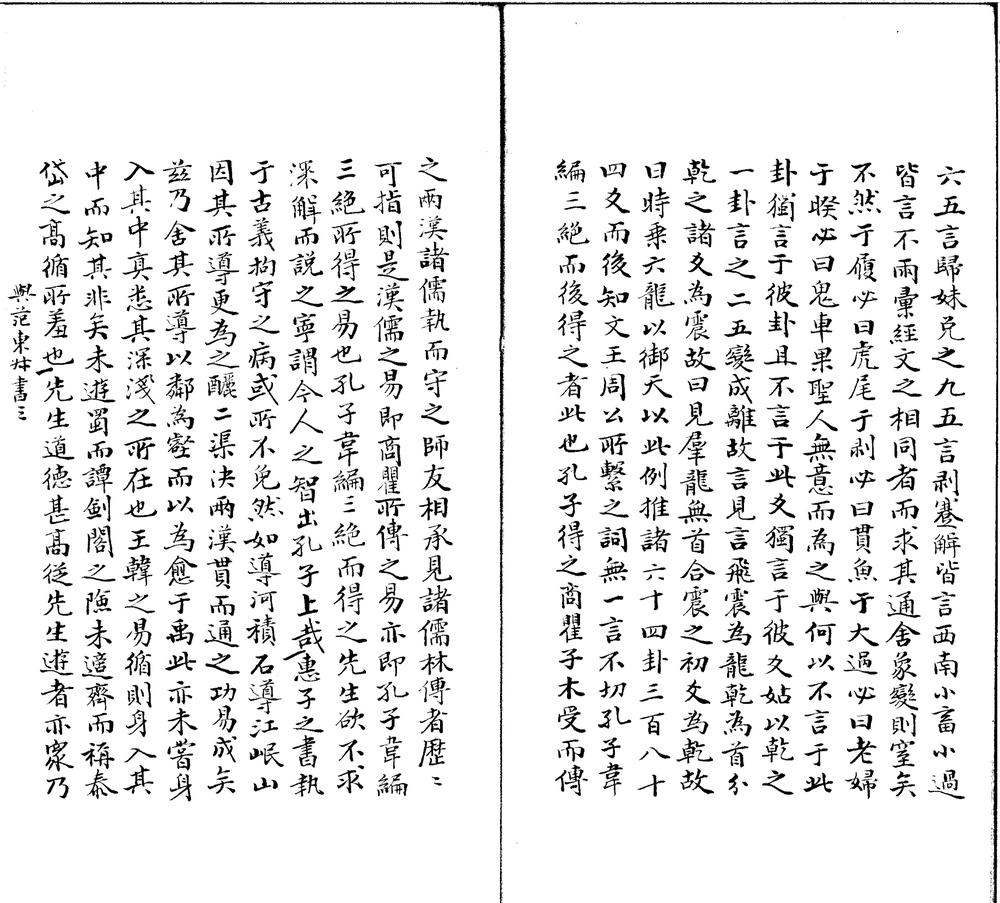 六五言歸妹兑之九五言剥蹇解皆言西南小畜小過
皆言不雨彙經文之相同者而求其通舍象變則窒矣
不然于履必曰虎尾于剥必曰貫魚于大過必曰老婦
于睽必曰鬼車果聖人無意而為之與何以不言于此
卦獨言于彼卦且不言于此爻獨言于彼爻姑以乾之
一卦言之二五變成離故言見言飛震為龍乾為首分
乾之諸爻為震故曰見羣龍無首合震之初爻為乾故
曰時乗六龍以御天以此例推諸六十四卦三百八十
四爻而後知文王周公所繫之詞無一言不切孔子韋
編三絕而後得之者此也孔子得之商瞿子木受而傳
之兩漢諸儒執而守之師友相承見諸儒林傳者歷〻
可指則是漢儒之易即商瞿所傳之易亦即孔子韋編
三絕所得之易也孔子韋編三絕而得之先生欲不求
深解而説之寧謂今人之智出孔子上哉惠子之書執
于古義拘守之病或所不免然如導河積石導江岷山
因其所導更為之釃二渠決兩漢貫而通之功易成矣
兹乃舍其所導以鄰為壑而以為愈于禹此亦未嘗身
入其中真悉其深淺之所在也王韓之易循則身入其
中而知其非矣未遊蜀而譚劍閣之險未適齊而稱泰
岱之髙循所羞也先生道德甚髙從先生遊者亦衆乃
與范東叔書三